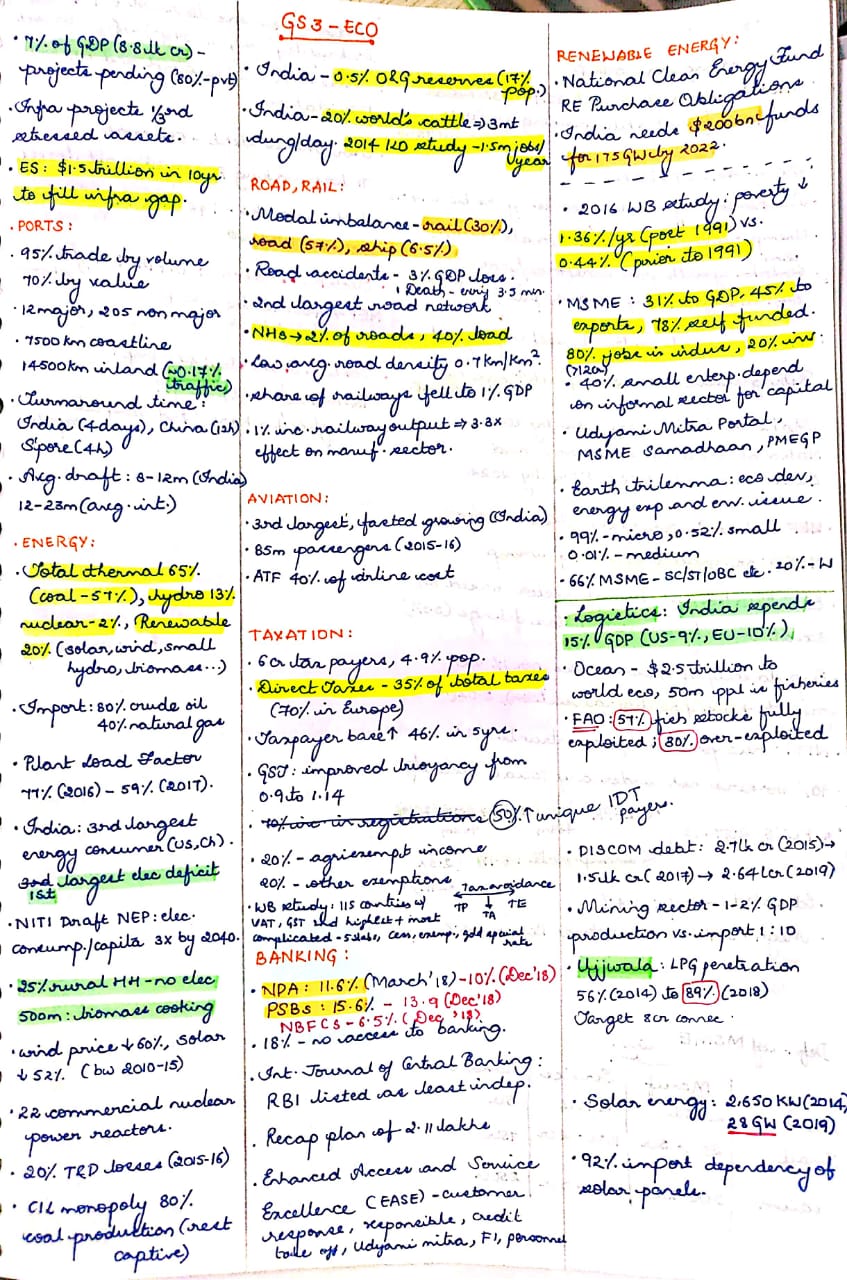 GS3-ECO
• 7% of GDP (8.8lk cr) -
projects pending (80%-pvt)
• Infra projects 1/3rd
stressed assets.
• ES: $1.5 trillion in 10yr
to fill infra gap.
• PORTS:
• 95% trade by volume
70% by value
• 12 major, 205 non major
• 7500 km coastline
14500km inland (~0.17%
traffic)
• Turnaround time:
India (4days), China (12h)
S'pore (4h)
• Avg. draft: 8-12m (India)
12-23m (avg. int.)
• ENERGY:
• Total thermal 65%
(coal-57%), hydro 13%
nuclear-2%, Renewable
20% (solar, wind, small
hydro, biomass...)
• Import: 80% crude oil
40% natural gas
• Plant Load Factor
77% (2016) - 59% (2017).
• India: 3rd largest
energy consumer (US, Ch).
largest elec deficit
1st
• NITI Draft NEP: elec.
consump./capita 3x by 2040.
• 25% rural HH - no elec
500m: biomass cooking
• wind price ↓ 60%, solar
↓ 52% (bw 2010-15)
• 22 commercial nuclear
power reactors.
• 20% T&D losses (2015-16)
• CIL monopoly 80%
coal production (rest
captive)
• India - 0.5% O&G reserves (17%
pop.)
• India - 20% world's cattle ⇒ 3mt
dung/day. 2014 study - 1.5m jobs/
year
ROAD, RAIL:
• Modal imbalance - rail (30%),
road (57%), ship (6.5%)
• Road accidents - 3% GDP loss.
1 Death - every 3.5 min.
• 2nd largest road network
• NHs → 2% of roads, 40% load
• Low avg. road density 0.7 km/km².
• share of railways fell to 1% GDP
• 1% inc. railway output ⇒ 3.3x
effect on manuf. sector.
AVIATION:
• 3rd largest, fasted growing (India)
• 85m passengers (2015-16)
• ATF 40% of airline cost
TAXATION:
• 6 cr tax payers, 4.9% pop.
• Direct Taxes - 35% of total taxes
(70% in Europe)
• Taxpayer base ↑ 46% in 5yrs.
• GST: improved buoyancy from
0.9 to 1.14
• 70% inc in registrations 50% ↑ unique IDT
payers.
• 20% - agri exempt income
20% - other exemptions
Tax avoidance
TP TA TE
• WB study: 115 countries w/
VAT, GST 2nd highest + most
complicated - 5 slabs, cess, exemp., gold special
rate
BANKING:
• NPA: 11.6% (March '18) - 10% (Dec '18)
PSBs: 15.6% - 13.9 (Dec '18)
NBFCS - 6.5% (Dec '18)
• 18% - no access to banking.
• Int. Journal of Central Banking:
RBI listed as least indep.
• Recap plan of 2.11 lakhs
• Enhanced Access and Service
Excellence (EASE) - customer
response, responsible, credit
take off, Udyami mitra, FI, personnel
RENEWABLE ENERGY:
• National Clean Energy Fund
RE Purchase Obligations
• India needs $200bn funds
for 175 GW by 2022.
• 2016 WB study: poverty ↓
1.36%/yr (post 1991) vs.
0.44% (prior to 1991)
• MSME: 31% to GDP, 45% to
exports, 78% self funded.
80% jobs in indus, 20% inv.
(712cr)
• 40% small enterp. depend
on informal sector for capital
• Udyami Mitra Portal,
MSME Samadhaan, PMEGP
• Earth trilemma: eco dev,
energy exp and env. issue.
• 99% - micro, 0.52% small
0.01% - medium
• 66% MSME - SC/ST/OBC etc. 20% - W
• Logistics: India spends
15% GDP (US-9%, EU-10%)
• Ocean - $2.5 trillion to
world eco, 50m ppl in fisheries
• FAO: 57% fish stocks fully
exploited; 30% over-exploited
• DISCOM debt: 2.7lk cr (2015) →
1.5lk cr (2017) → 2.64 lcr (2019)
• Mining sector - 1-2% GDP
production vs. import 1:10
• Ujjwala: LPG penetration
56% (2014) to 89% (2018)
Target 8cr connec.
• Solar energy: 2.650 KW (2014)
28 GW (2019)
• 92% import dependency of
solar panels.